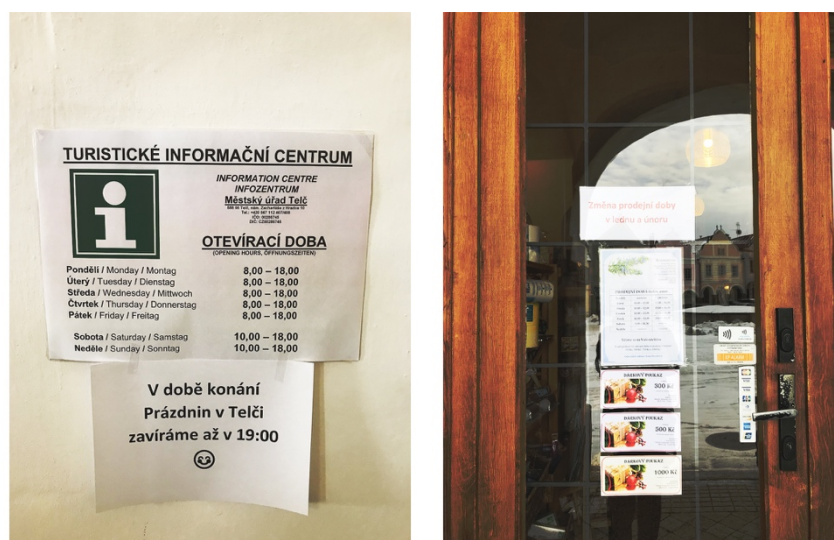 TURISTICKÉ INFORMAČNÍ CENTRUM
INFORMATION CENTRE
INFOZENTRUM
Městský úřad Telč
OTEVÍRACÍ DOBA
(OPENING HOURS, ÖFFNUNGSZEITEN)
Pondělí / Monday / Montag 8,00 – 18,00
Úterý / Tuesday / Dienstag 8,00 – 18,00
Středa / Wednesday / Mittwoch 8,00 – 18,00
Čtvrtek / Thursday / Donnerstag 8,00 – 18,00
Pátek / Friday / Freitag 8,00 – 18,00
Sobota / Saturday / Samstag 10,00 – 18,00
Neděle / Sunday / Sonntag 10,00 – 18,00
V době konání
Prázdnin v Telči
zavíráme až v 19:00
Změna prodejní doby
v lednu a únoru
DÁRKOVÝ POUKAZ
300 Kč
DÁRKOVÝ POUKAZ
500 Kč
DÁRKOVÝ POUKAZ
1000 Kč